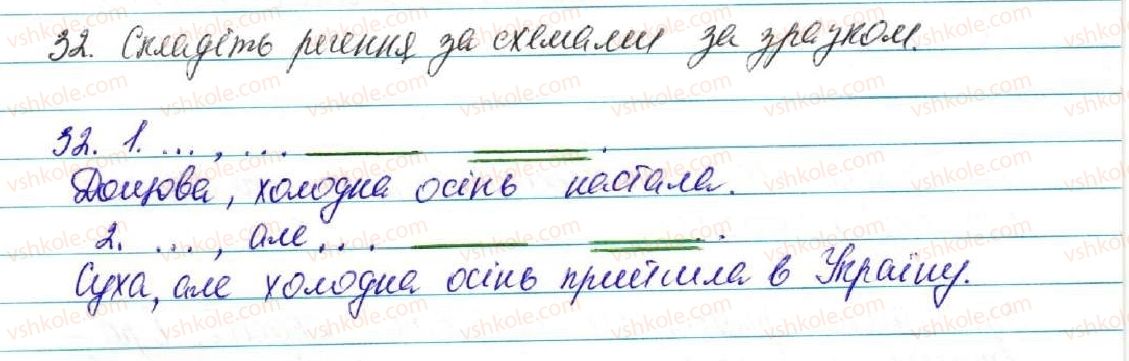 32. Складіть речення за схемами за зразком.
32. 1. ..., ... ___ ___.
Дощова, холодна осінь настала.
2. ..., але ... ___ ___.
Суха, але холодна осінь прийшла в Україну.